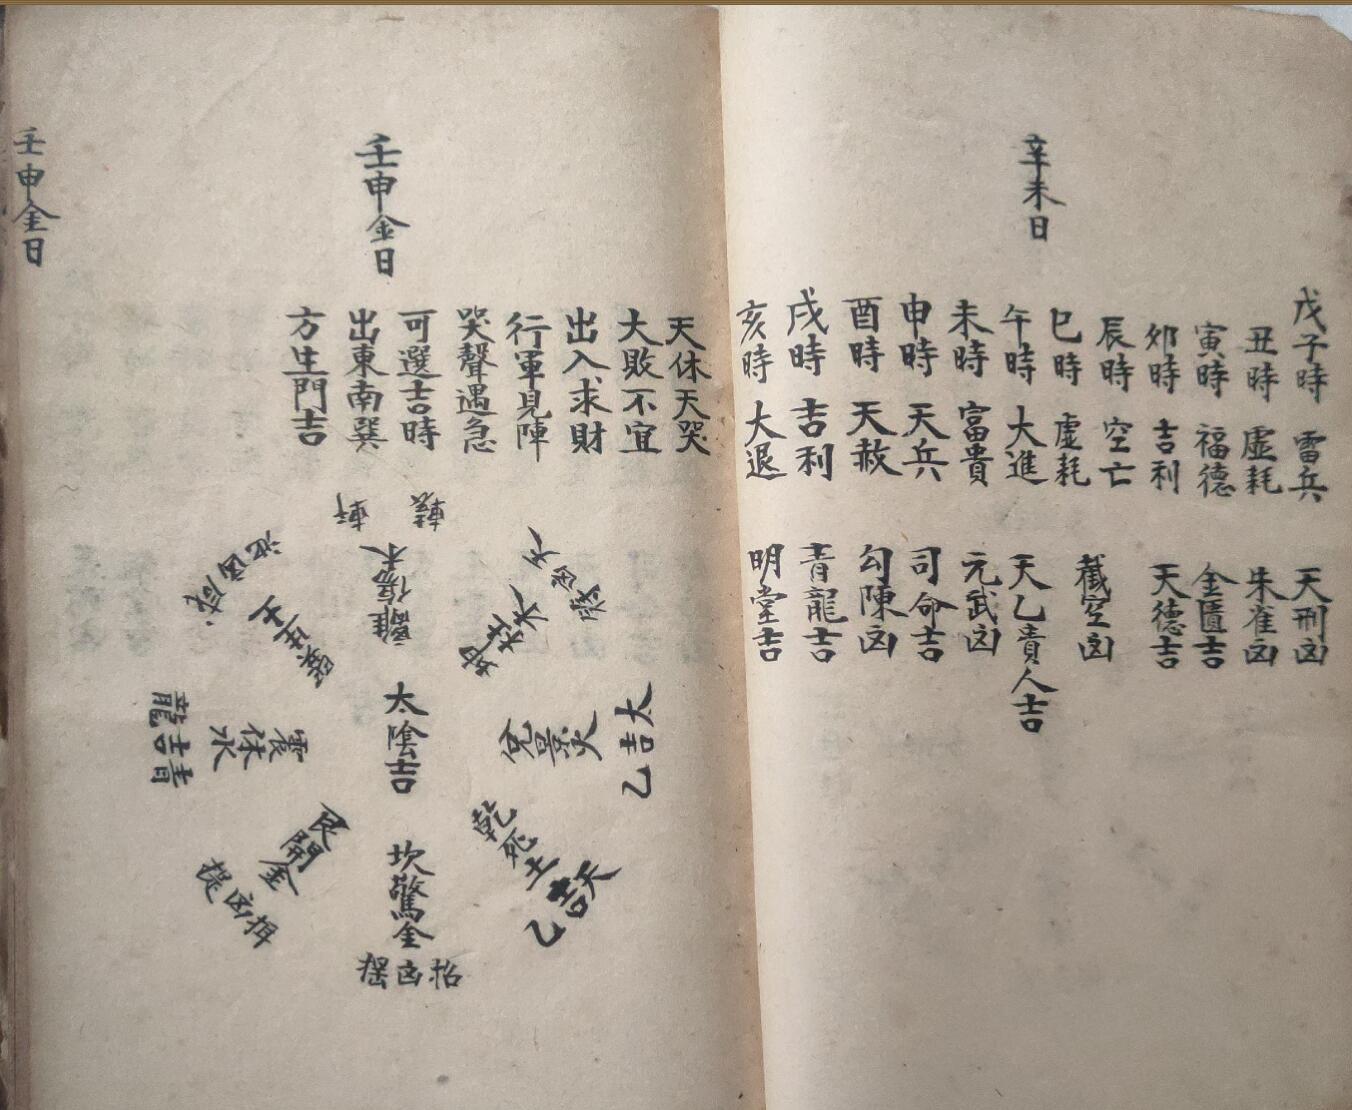 辛未日
戊子時 雷兵 天刑凶
丑時 虛耗 朱雀凶
寅時 福德 金匱吉
卯時 吉利 天德吉
辰時 空亡 截空凶
巳時 虛耗
午時 大進 天乙貴人吉
未時 富貴 元武凶
申時 天兵 司命吉
酉時 天赦 勾陳凶
戌時 吉利 青龍吉
亥時 大退 明堂吉
壬申金日
天休天哭
大敗不宜
出入求財
行軍見陣
哭聲遇急
可選吉時
出東南巽
方生門吉
軒轅
離傷木
咸凶池
巽生土
坤杜木
天凶
太陰吉
青吉龍
震休水
兌景火
太吉乙
艮開金
坎驚金
招凶搖
乾死土
天吉乙
壬申金日